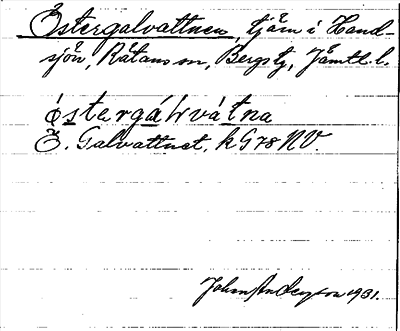 Östergalvattnen, tjärn i Hand-
sjön, Rätans sn, Bergs tg, Jämtl. l.
östergálvátna
Ö. Galvattnet, k G78 NV
John Anderzon 1931.